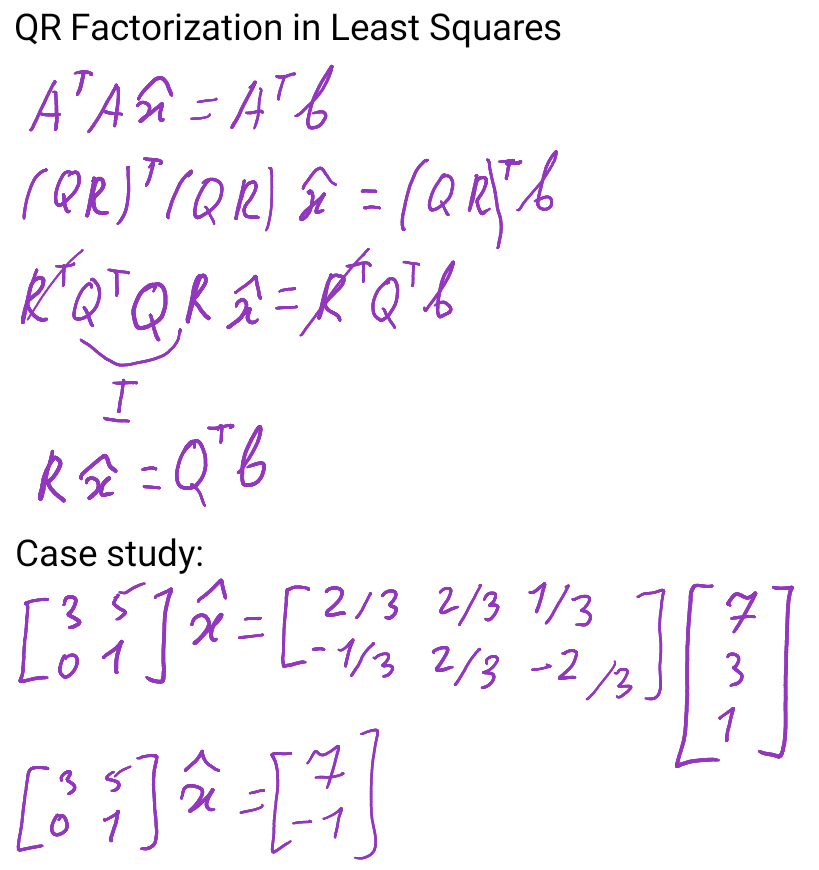 QR Factorization in Least Squares
AᵀAx̂ = Aᵀb
(QR)ᵀ(QR) x̂ = (QR)ᵀb
RᵀQᵀQR x̂ = RᵀQᵀb
I
R x̂ = Qᵀb
Case study:
[3 5; 0 1] x̂ = [2/3 2/3 1/3; -1/3 2/3 -2/3] [7; 3; 1]
[3 5; 0 1] x̂ = [7; -1]